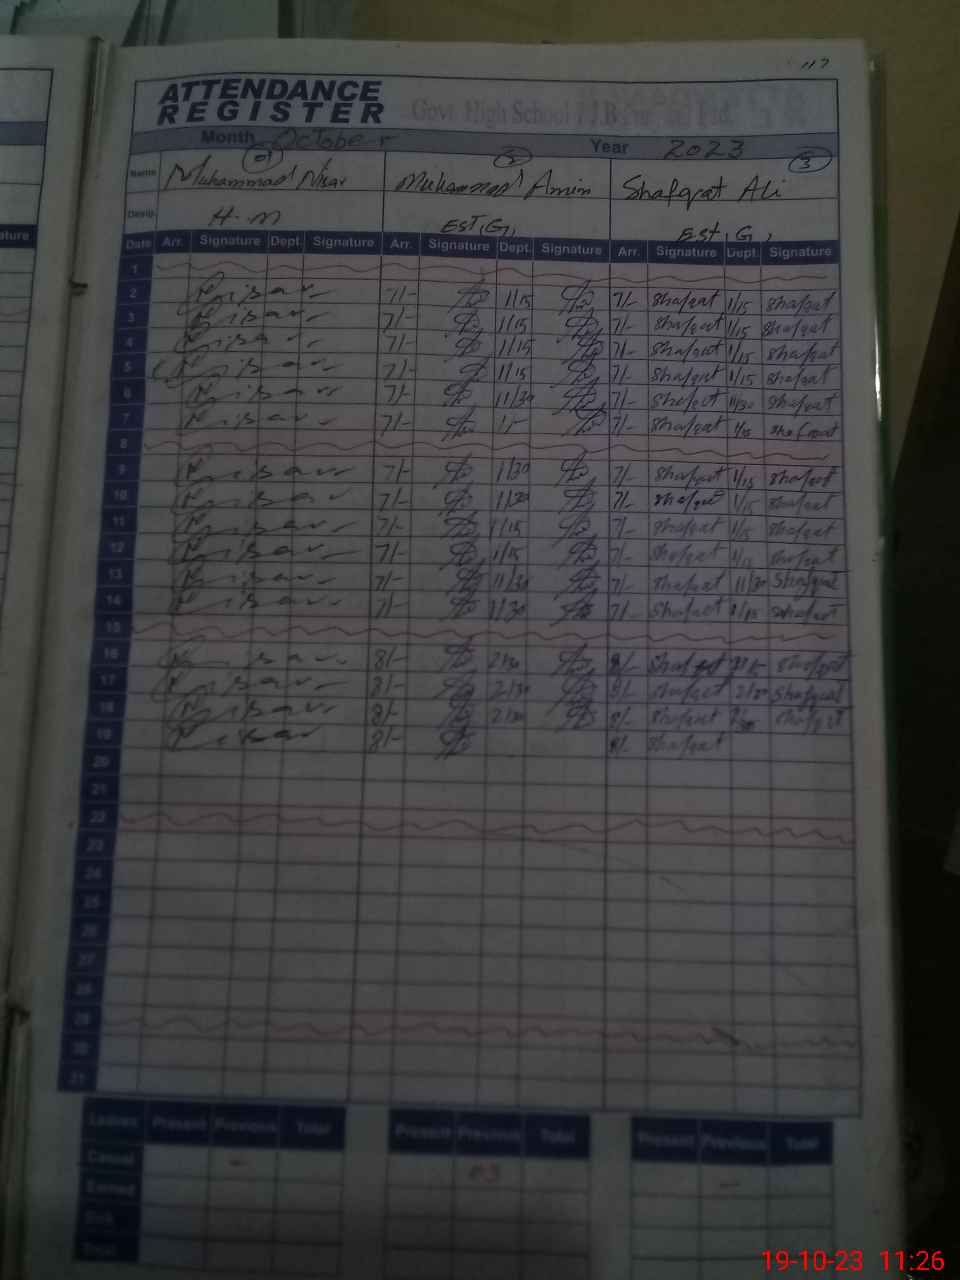 117
ATTENDANCE
REGISTER
Govt High School
Month October Year 2023
01 2 3
Name Muhammad Nisar Muhammad Amin Shafqat Ali
Desig. H.M EST,G, EST,G,
Date Arr. Signature Dept. Signature Arr. Signature Dept. Signature Arr. Signature Dept. Signature
1
2 Nisar 7/- 1/15 7/- Shafqat 1/15 Shafqat
3 Nisar 7/- 1/15 7/- Shafqat 1/15 Shafqat
4 Nisar 7/- 1/15 7/- Shafqat 1/15 Shafqat
5 Nisar 7/- 1/15 7/- Shafqat 1/15 Shafqat
6 Nisar 7/- 11/30 7/- Shafqat 11/30 Shafqat
7 Nisar 7/- 7/- Shafqat 1/15 Shafqat
8
9 Nisar 7/- 1/30 7/- Shafqat 1/15 Shafqat
10 Nisar 7/- 1/30 7/- Shafqat 1/15 Shafqat
11 Nisar 7/- 1/15 7/- Shafqat 1/15 Shafqat
12 Nisar 7/- 1/15 7/- Shafqat 1/15 Shafqat
13 Nisar 7/- 11/30 7/- Shafqat 11/30 Shafqat
14 Nisar 7/- 1/30 7/- Shafqat 1/15 Shafqat
15
16 Nisar 8/- 2/30 8/- Shafqat Shafqat
17 Nisar 8/- 2/30 8/- Shafqat 2/30 Shafqat
18 Nisar 8/- 2/30 8/- Shafqat Shafqat
19 Nisar 8/- 8/- Shafqat
20
21
22
23
24
25
26
27
28
29
30
31
Leaves Present Previous Total Present Previous Total Present Previous Total
Casual - 03 -
Earned
Sick
Total
19-10-23 11:26